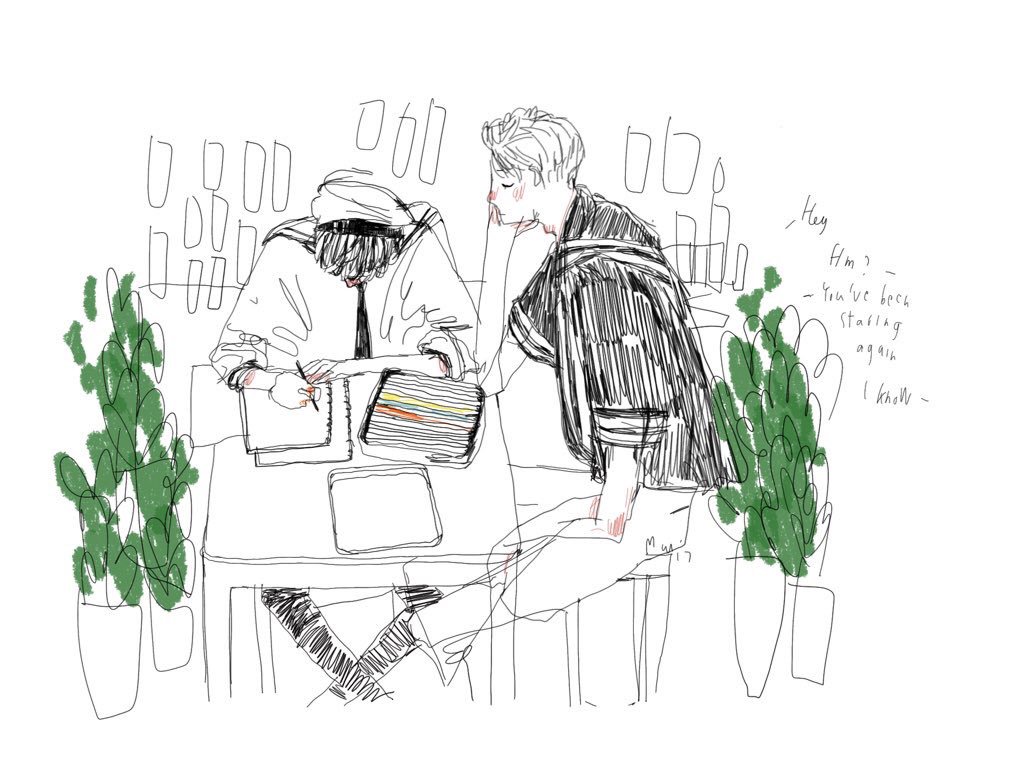 - Hey
Hm? -
- You've been
staring
again
I know -
Muni
17